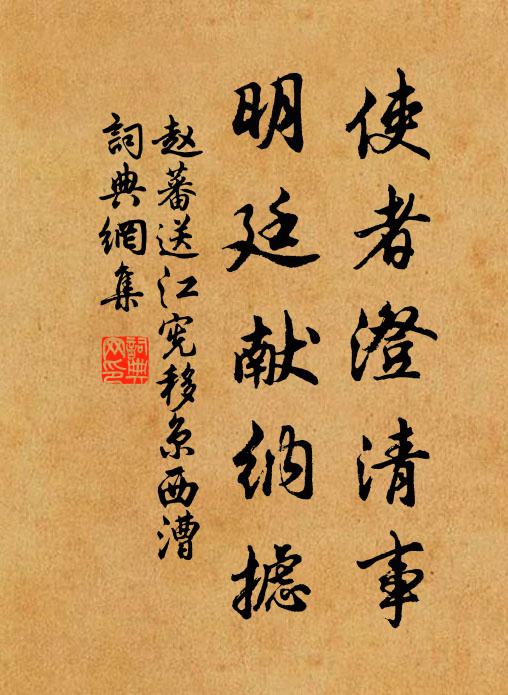 使者澄清事
明廷献纳摅
赵蕃送江宪移京西漕
詞典網集
詞典網印